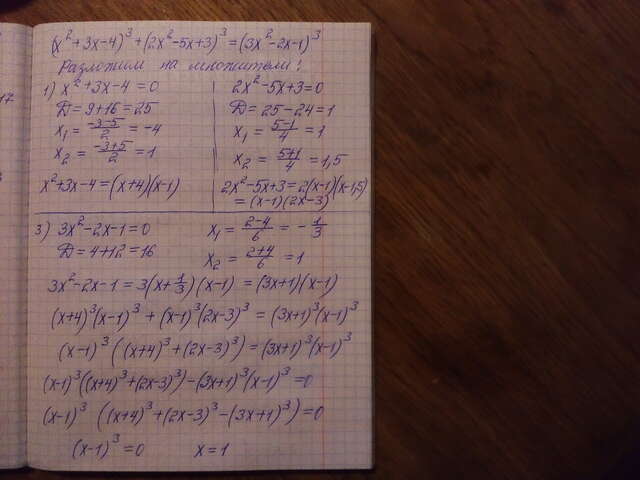 (x²+3x-4)³+(2x²-5x+3)³=(3x²-2x-1)³
Разложим на множители:
1) x²+3x-4=0
D=9+16=25
x₁=(-3-5)/2=-4
x₂=(-3+5)/2=1
x²+3x-4=(x+4)(x-1)
2x²-5x+3=0
D=25-24=1
x₁=(5-1)/4=1
x₂=(5+1)/4=1,5
2x²-5x+3=2(x-1)(x-1,5)
=(x-1)(2x-3)
3) 3x²-2x-1=0
D=4+12=16
x₁=(2-4)/6=-1/3
x₂=(2+4)/6=1
3x²-2x-1=3(x+1/3)(x-1)=(3x+1)(x-1)
(x+4)³(x-1)³+(x-1)³(2x-3)³=(3x+1)³(x-1)³
(x-1)³((x+4)³+(2x-3)³)=(3x+1)³(x-1)³
(x-1)³((x+4)³+(2x-3)³)-(3x+1)³(x-1)³=0
(x-1)³((x+4)³+(2x-3)³-(3x+1)³)=0
(x-1)³=0 x=1
17